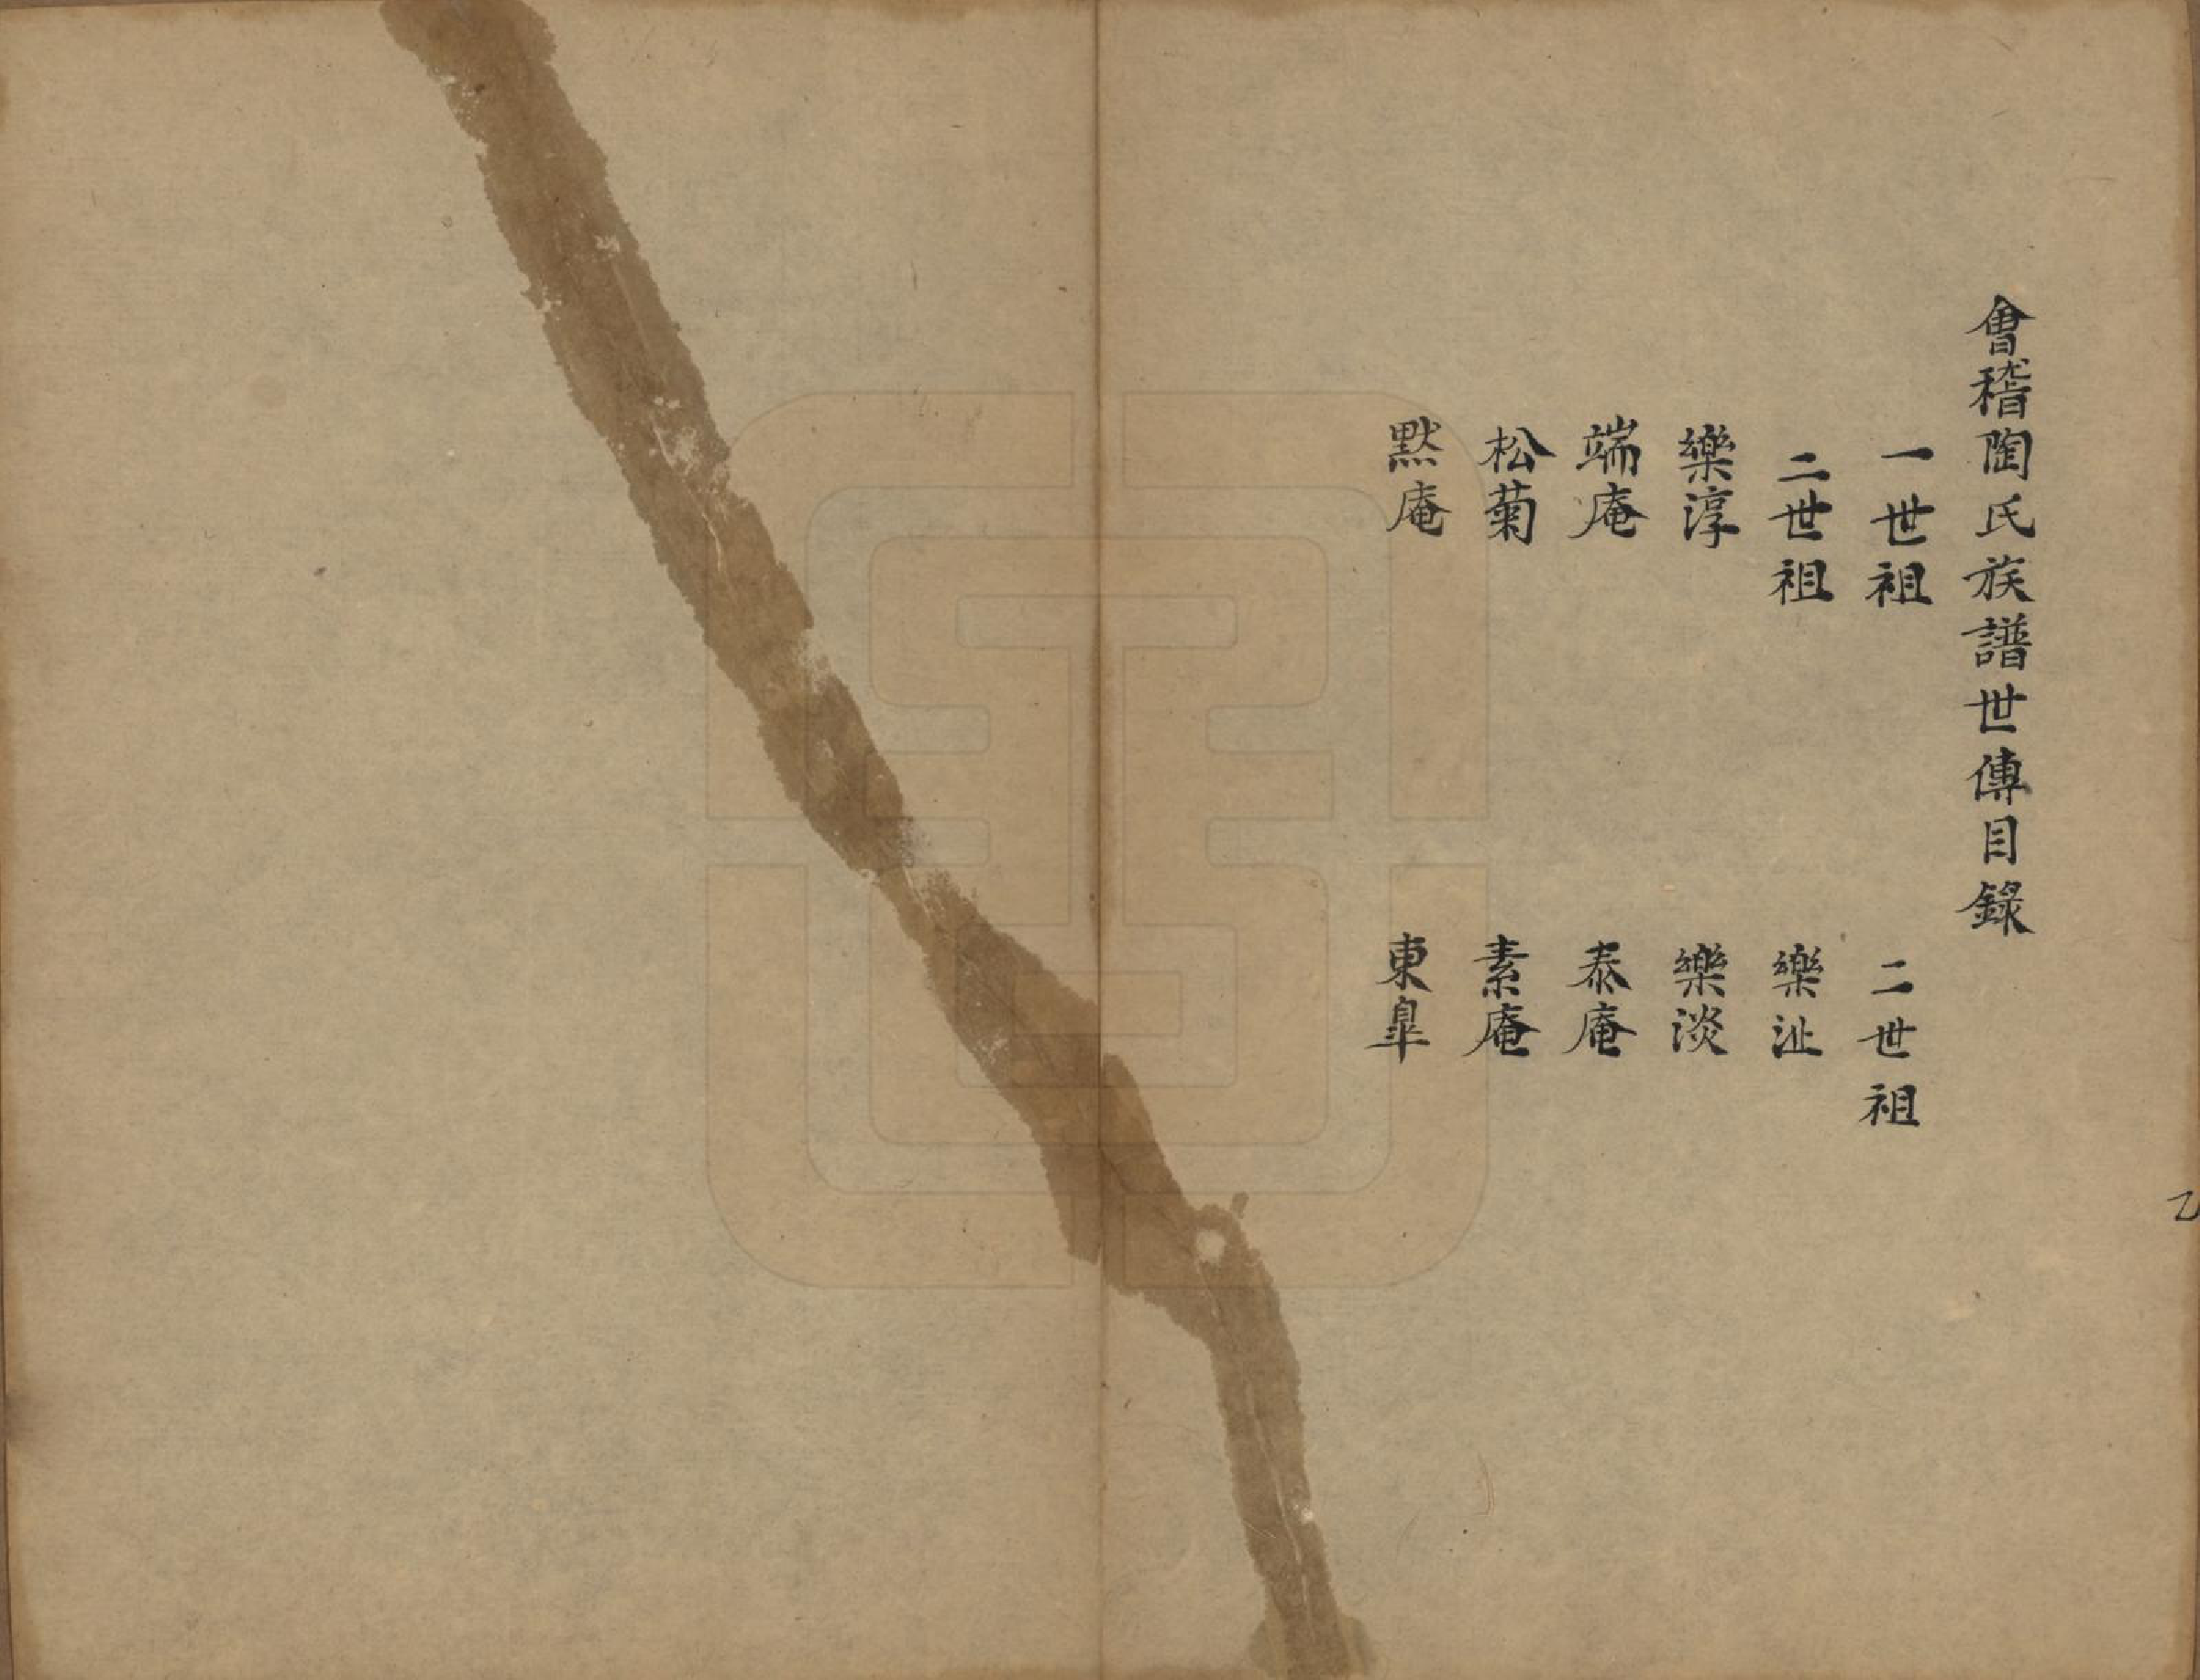 會稽陶氏族譜世傳目錄
一世祖　二世祖
二世祖　樂沚
樂淳　樂淡
端庵　泰庵
松菊　素庵
默庵　東皐